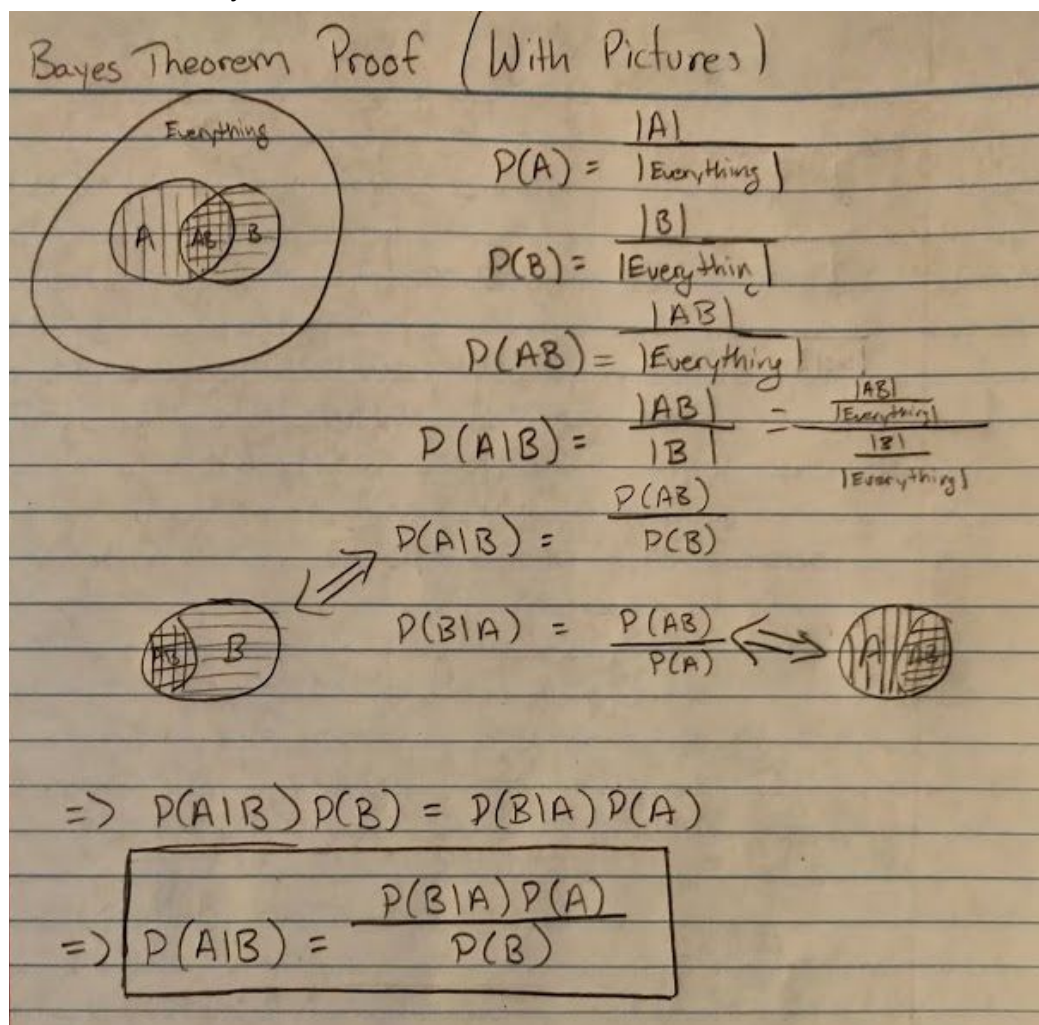 Bayes Theorem Proof (With Pictures)
Everything
A AB B
P(A) = |A| / |Everything|
P(B) = |B| / |Everything|
P(AB) = |AB| / |Everything|
P(A|B) = |AB| / |B| = (|AB| / |Everything|) / (|B| / |Everything|)
P(A|B) = P(AB) / P(B)
AB B
P(B|A) = P(AB) / P(A)
A AB
=> P(A|B) P(B) = P(B|A) P(A)
=> P(A|B) = P(B|A) P(A) / P(B)